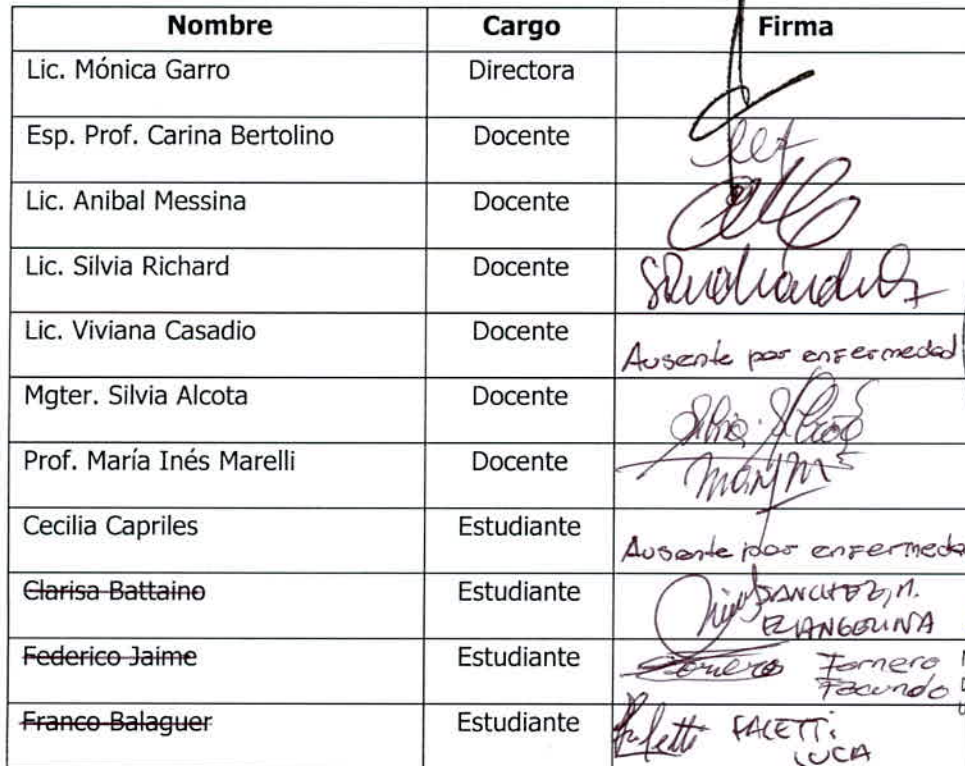 Nombre Cargo Firma
Lic. Mónica Garro Directora
Esp. Prof. Carina Bertolino Docente
Lic. Anibal Messina Docente
Lic. Silvia Richard Docente
Lic. Viviana Casadio Docente Ausente por enfermedad
Mgter. Silvia Alcota Docente
Prof. María Inés Marelli Docente
Cecilia Capriles Estudiante Ausente por enfermeda
Clarisa Battaino Estudiante SANCHEZ, M.
EVANGELINA
Federico Jaime Estudiante Fornero
Facundo
Franco Balaguer Estudiante FALETTi
LUCIA